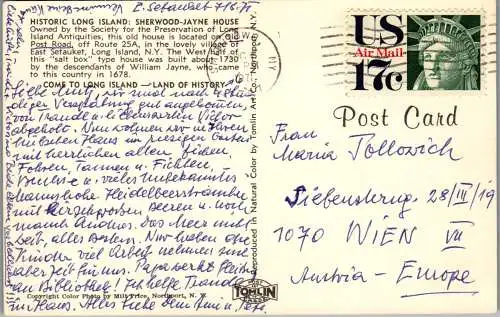 E. Setauket 7.6.71
HISTORIC LONG ISLAND: SHERWOOD-JAYNE HOUSE
Owned by the Society for the Preservation of Long
Island Antiquities, this old house is located on Old
Post Road, off Route 25A, in the lovely village of
East Setauket, Long Island, N.Y. The West half of
this "salt box" type house was built about 1730
by the descendants of William Jayne, who came
to this country in 1678.
COME TO LONG ISLAND — LAND OF HISTORY
wir sind nach 4
diger Verspätung gut angekommen,
von Traudl u.
abgeholt. Nun wohnen wir in Ihrem
Haus im riesigen Garten
mit herrlichen alten Eichen,
Föhren, Tannen u. Fichten,
u. vieles Unbekanntes
Heidelbeersträucher
mit kirschgrossen Beeren u. noch
manch Andres. Das Meer nicht
weit, alles bestens. Nur haben die
Kinder viel Arbeit nehmen sich
aber Zeit für uns. Papa werkt fleissig
an Bibliothek! Ich helfe Traudl
im Haus. Alles Liebe
Copyright Color Photo by Milt Price, Northport, N. Y.
Reproduced in Natural Color by Tomlin Art Co., Northport, N.Y.
TOMLIN
NY
US
Air Mail
17c
Post Card
Frau
Maria Tollovich
Siebensterng 28/III/19
1070 WIEN VII
Austria - Europe